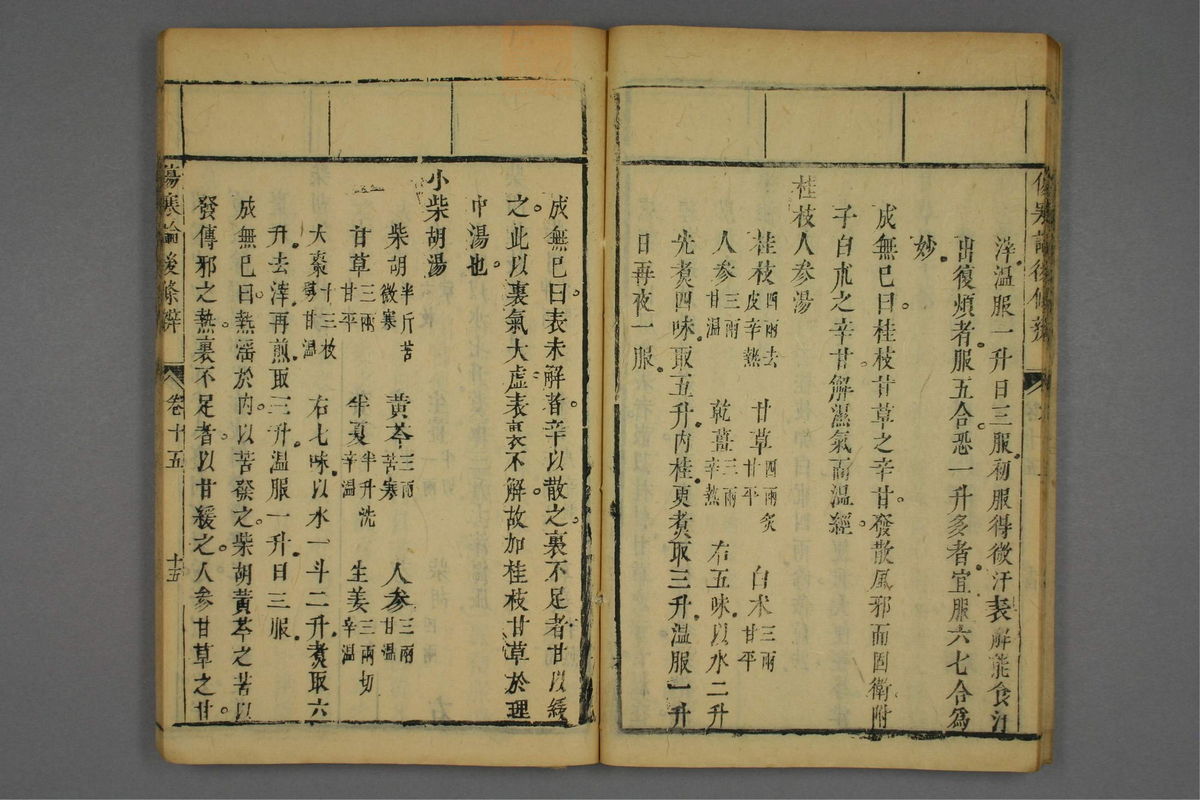 滓溫服一升日三服初服得微汗表解能食汗
出復煩者服五合恐一升多者宜服六七合爲
妙
成無已曰桂枝甘草之辛甘發散風邪而固衛附
子白朮之辛甘解濕氣而溫經
桂枝人參湯
桂枝四兩去皮辛熱 甘草四兩炙甘平 白术三兩甘平
人參三兩甘溫 乾薑三兩辛熱 右五味以水二升
先煑四味取五升內桂更煑取三升溫服一升
日再夜一服
成無已曰表未解者辛以散之裏不足者甘以緩
之此以裏氣大虛表裏不解故加桂枝甘草於理
中湯也
小柴胡湯
柴胡半斤苦微寒 黃芩三兩苦寒 人參三兩甘溫
甘草三兩甘平 半夏半升洗辛溫 生姜三兩切辛溫
大棗十三枚擘甘溫 右七味以水一斗二升煑取六
升去滓再煎取三升溫服一升日三服
成無已曰熱淫於內以苦發之柴胡黃芩之苦以
發傳邪之熱裏不足者以甘緩之人參甘草之甘
傷寒論後條辨 卷十五 十五